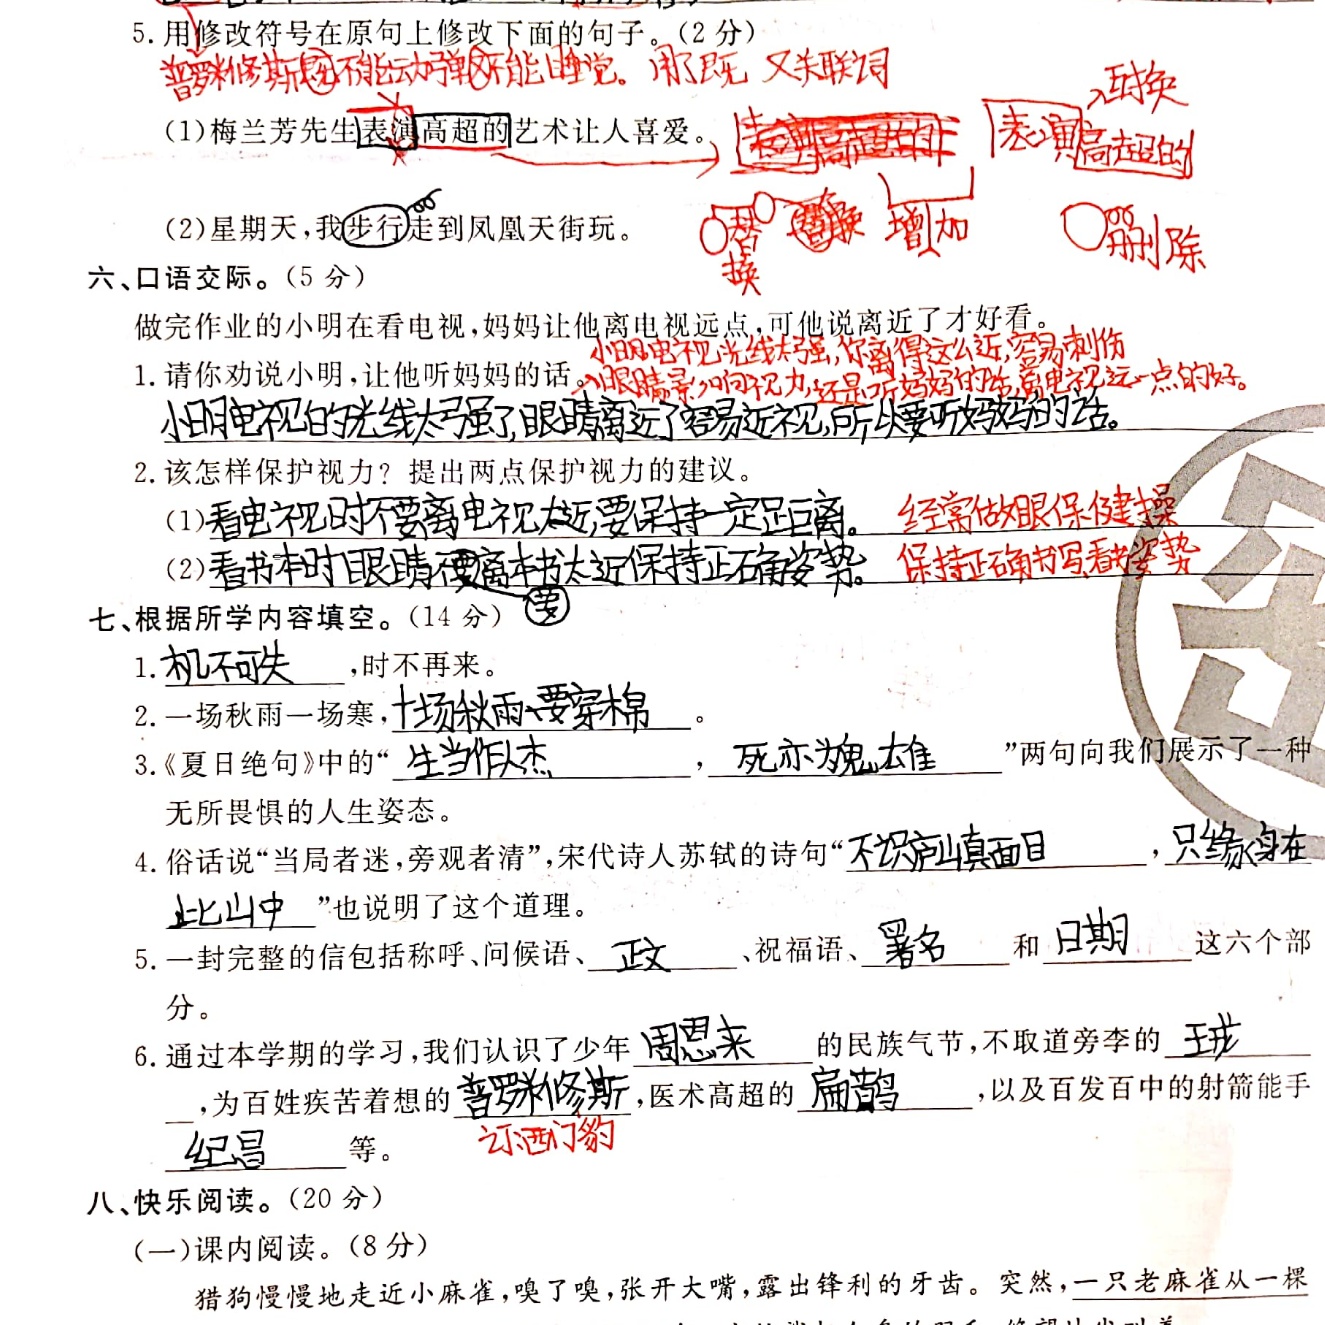 5.用修改符号在原句上修改下面的句子。(2分)
普罗米修斯既不能运动弹又不能睡觉。用了既 又关联词
互换
(1)梅兰芳先生表演高超的艺术让人喜爱。
表演高超的
(2)星期天,我步行走到凤凰天街玩。
替换 增加 删除
六、口语交际。(5分)
做完作业的小明在看电视,妈妈让他离电视远点,可他说离近了才好看。
小明电视光线太强,你离得这么近,容易刺伤
1.请你劝说小明,让他听妈妈的话。
眼睛影响视力,还是听妈妈的话,离电视远一点的好。
小明电视的光线太强了,眼睛离近了容易近视,所以要听妈妈的话。
2.该怎样保护视力?提出两点保护视力的建议。
(1)看电视时不要离电视太近,要保持一定距离。 经常做眼保健操
(2)看书本时眼睛不要离本书太近保持正确姿势。 保持正确书写看书姿势
要
七、根据所学内容填空。(14分)
1.机不可失,时不再来。
2.一场秋雨一场寒,十场秋雨要穿棉。
3.《夏日绝句》中的“生当作人杰,死亦为鬼雄”两句向我们展示了一种
无所畏惧的人生姿态。
4.俗话说“当局者迷,旁观者清”,宋代诗人苏轼的诗句“不识庐山真面目,只缘身在
此山中”也说明了这个道理。
5.一封完整的信包括称呼、问候语、正文、祝福语、署名和日期这六个部
分。
6.通过本学期的学习,我们认识了少年周恩来的民族气节,不取道旁李的王戎
,为百姓疾苦着想的普罗米修斯,医术高超的扁鹊,以及百发百中的射箭能手
订:西门豹
纪昌等。
八、快乐阅读。(20分)
(一)课内阅读。(8分)
猎狗慢慢地走近小麻雀,嗅了嗅,张开大嘴,露出锋利的牙齿。突然,一只老麻雀从一棵